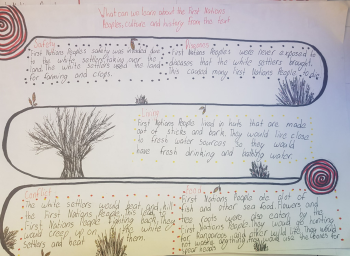 What can we learn about the First Nations
Peoples, culture and history from this text
Safety
First Nations People's safety was invaded due
to the white settlers taking over the
land. The white settlers used the land
for farming and crops.
Illness
First Nations People's were never exposed to
diseases that the white settlers brought,
this caused many First Nations People to die
Living
First Nations People lived in huts that are made
out of sticks and bark. They would live close
to fresh water sources so they would
have fresh drinking and bathing water.
Conflict
The white settlers would beat and kill
the First Nations People, this lead to
First Nations People fighting back, they
would creep up on the white
settlers and beat them.
Food
First Nations People ate alot of
fish and other sea food. Flowers and
tree roots were also eaten by the
First Nations People. They would go hunting
for kangaroos and other would they would
not waste anything they would use the bones for